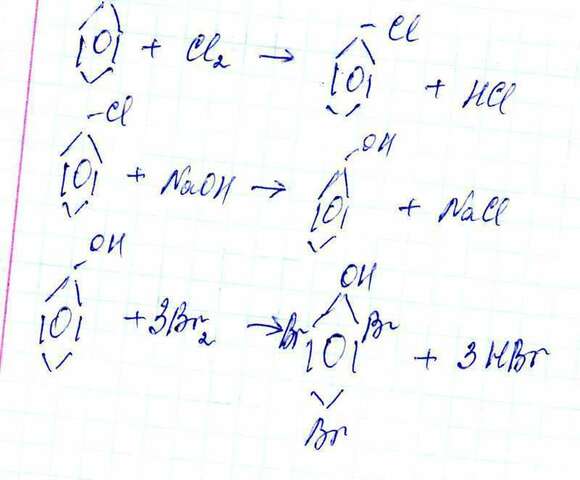 + Cl₂ → Cl + HCl
Cl + NaOH → OH + NaCl
OH + 3Br₂ → OH Br Br Br + 3HBr